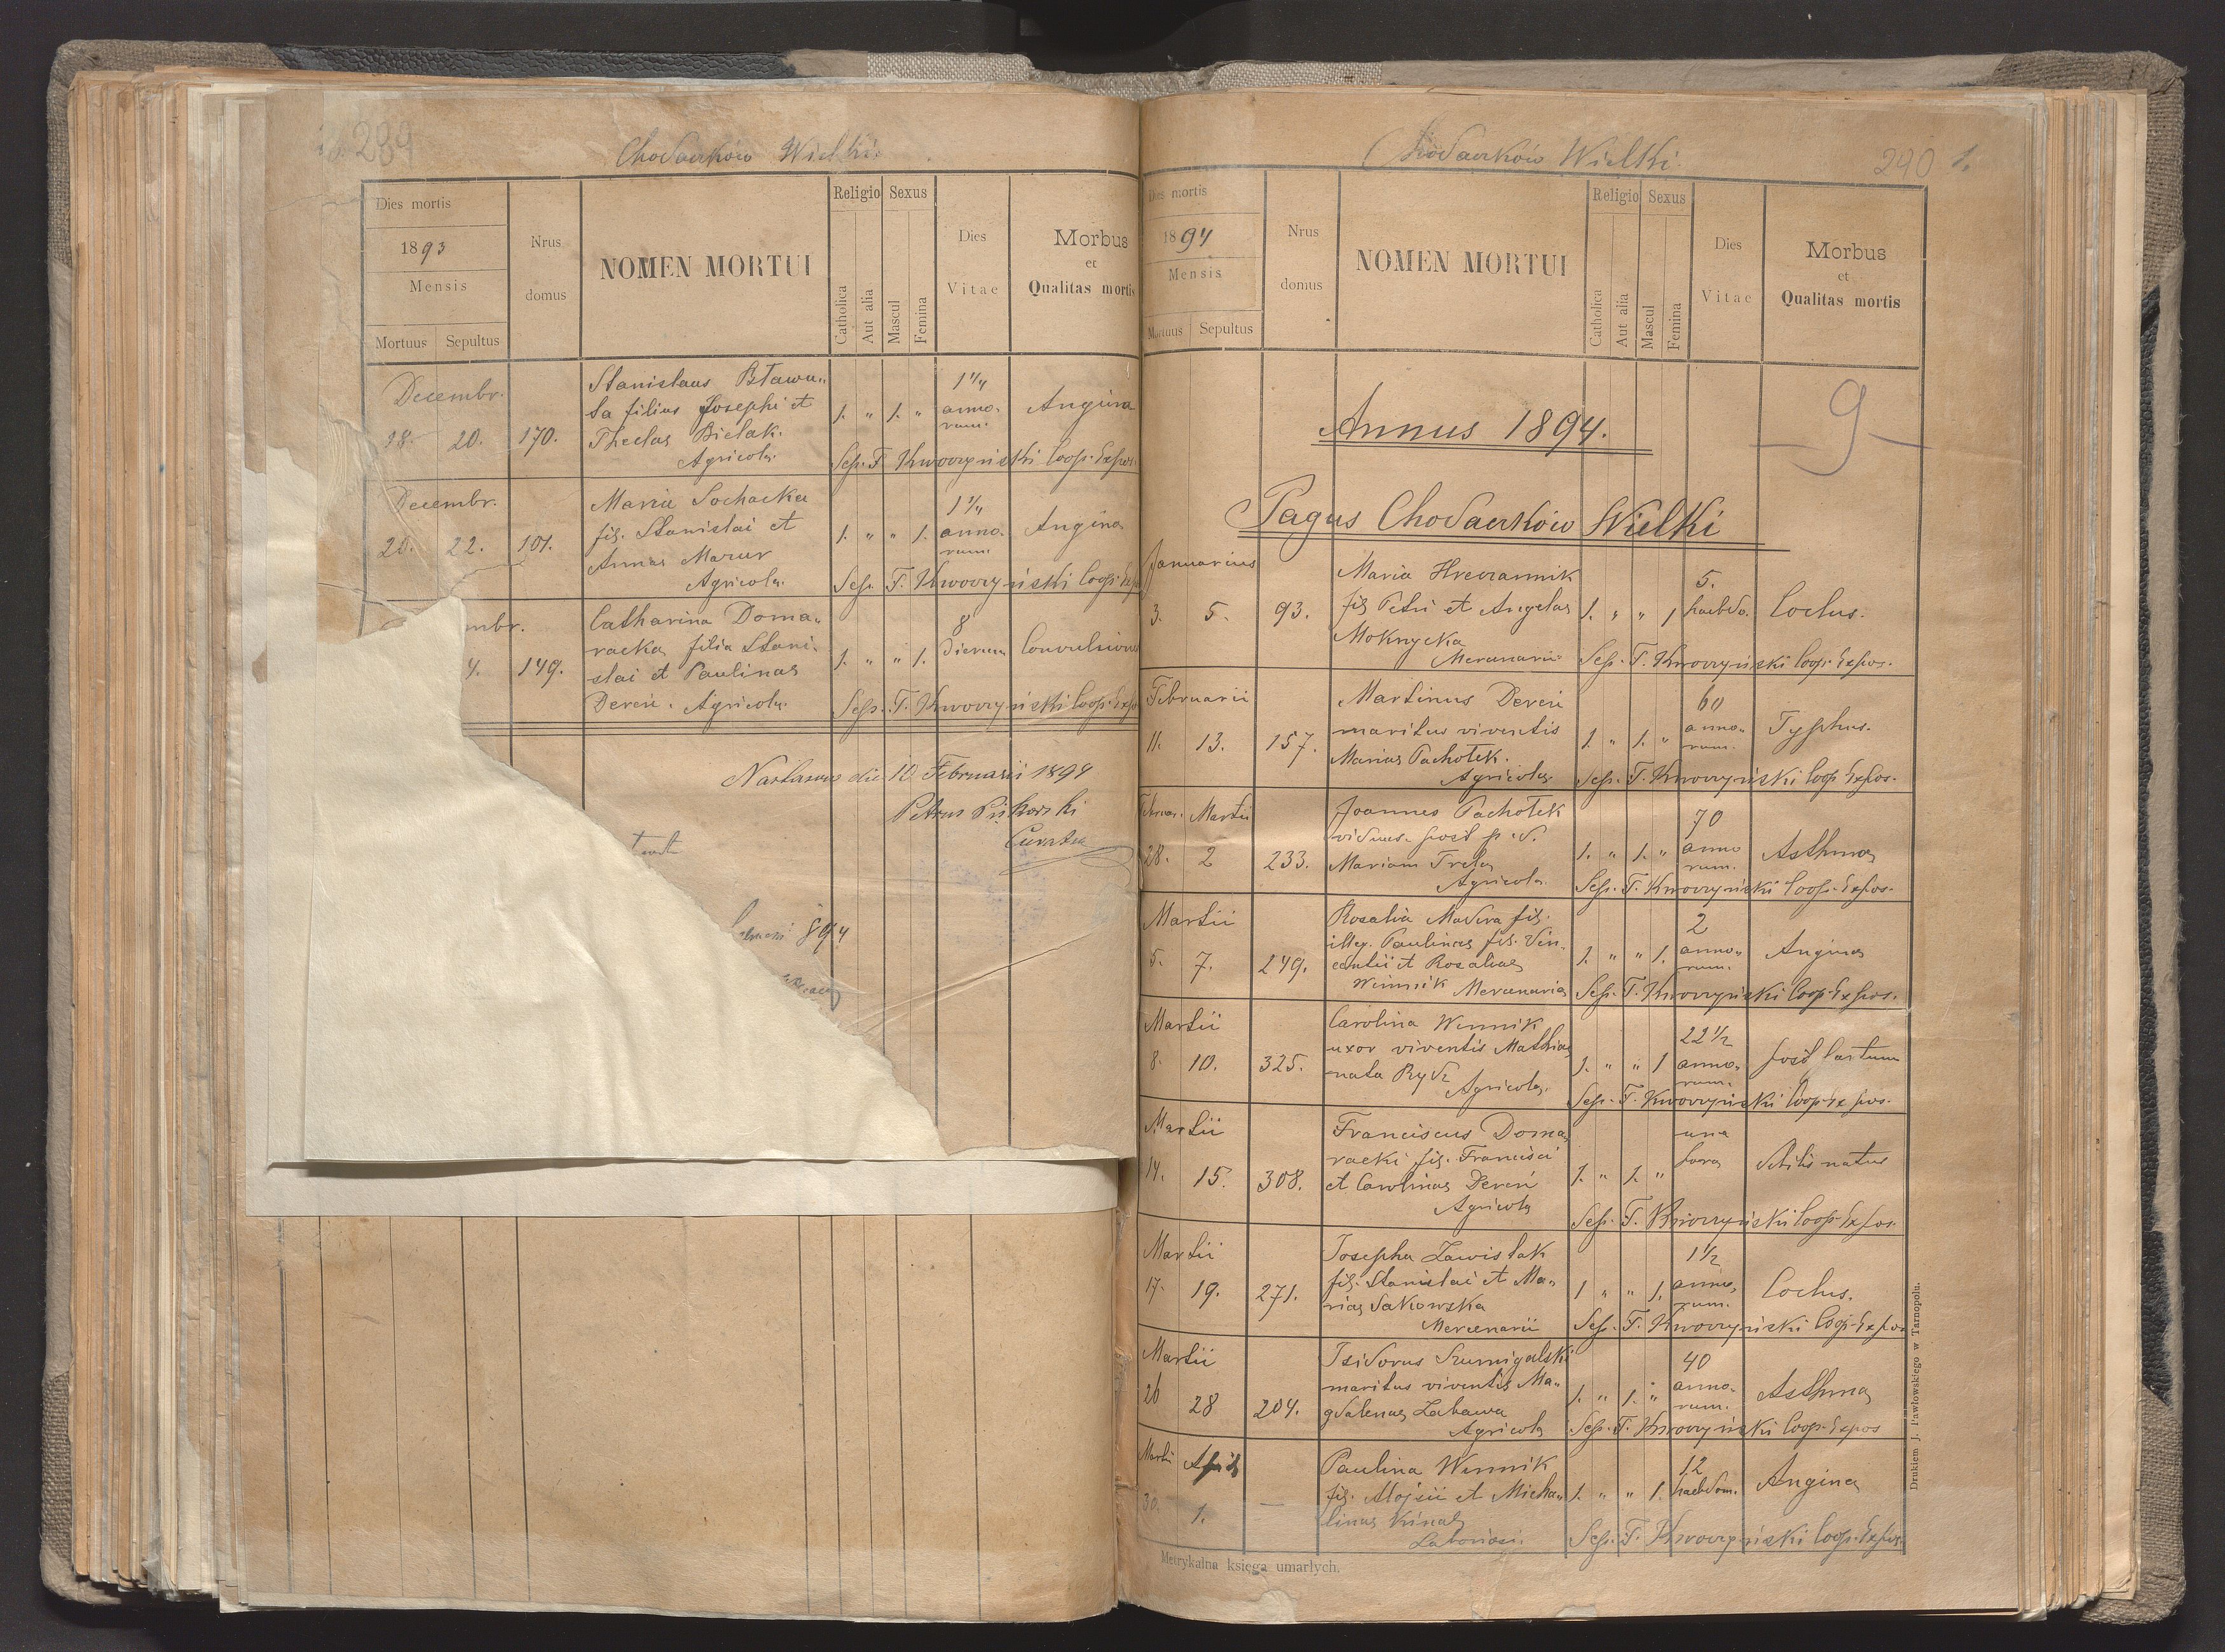 289
Chodaczków Wielki.
Dies mortis
1893
Mensis
Mortuus Sepultus
Nrus
domus
NOMEN MORTUI
Religio
Catholica
Aut alia
Sexus
Mascul
Femina
Dies
Vitae
Morbus
et
Qualitas mortis
Decembr.
18. 20. 170.
Stanislaus
filius Josephi et
Theclae Bielak.
Agricola.
1. " 1. "
1 1/4
anno-
rum.
Angina
Sep. T. Kwoczyński Coop. Expos.
Decembr.
20. 22. 101.
Maria Sochacka
fil. Stanislai et
Annae Mazur
Agricola.
1. " " 1.
1 1/4
anno-
rum.
Angina
Sep. T. Kwoczyński Coop. Exp
mbr.
4. 149.
Catharina Doma„
racka filia Stani„
slai et Paulinae
Dereń. Agricola.
1. " " 1.
8
dierum
Convulsiones
Sep. T. Kwoczyński Coop. Expo
Nastasow die 10 Februarii 1894
Petrus Pikorski
Curatus
894
290 1.
Chodaczków Wielki.
Dies mortis
1894
Mensis
Mortuus Sepultus
Nrus
domus
NOMEN MORTUI
Religio
Catholica
Aut alia
Sexus
Mascul
Femina
Dies
Vitae
Morbus
et
Qualitas mortis
Annus 1894.
9
Pagus Chodaczków Wielki
Januarius
3. 5. 93.
Maria
fil. Petri et Angelae
Moknycka
Mercenarii
1. " " 1
5.
haebdo.
Coclus.
Sep. T. Kwoczyński Coop. Expos.
Februarii
11. 13. 157.
Martinus Dereń
maritus viventis
Mariae Pachotek.
Agricola.
1. " 1. "
60
anno„
rum.
Typhus.
Sep. T. Kwoczyński Coop. Expos.
Februar. Martii
28. 2 233.
Joannes Pachotek
viduus post p. d.
Mariam Trela
Agricola.
1. " 1. "
70
anno
rum.
Asthma
Sep. T. Kwoczyński Coop. Expos.
Martii
5. 7. 249.
Rosalia Madera fil.
illeg. Paulinae fil. Vin„
centii et Rosaliae
Winnik Mercenaria
1. " " 1.
2
anno„
rum.
Angina
Sep. T. Kwoczyński Coop. Expos.
Martii
8. 10. 325.
Carolina Winnik
uxor viventis Mathiae
nata Rydz
Agricola.
1. " " 1
22 1/2
anno„
rum.
post partum
Sep. T. Kwoczyński Coop. Expos.
Martii
14. 15. 308.
Franciscus Doma„
racki fil. Francisci
et Carolinae Dereń
Agricola
1. " 1. "
una
hora
debilis natus
Sep. T. Kwoczyński Coop. Expos.
Martii
17. 19. 271.
Josepha Zawislak
fil. Stanislai et Ma„
riae Sakowska
Mercenarii
1 " " 1.
1 1/2
anno„
rum.
Coclus.
Sep. T. Kwoczyński Coop. Expos
Martii
26 28 204.
Isidorus Szumigalski
maritus viventis Ma„
gdalenae Zabawa
Agricola
1. " 1. "
40
anno-
rum.
Asthma
Sep. T. Kwoczyński Coop. Expos
Martii Aprilis
30. 1. —
Paulina Winnik
fil. Alojsii et Micha„
linae Kinal
Laboriosi.
1. " " 1.
12
haebdom.
Angina
Sep. T. Kwoczyński Coop. Expos.
Metrykalna księga umarłych.
Drukiem J. Pawłowskiego w Tarnopolu.